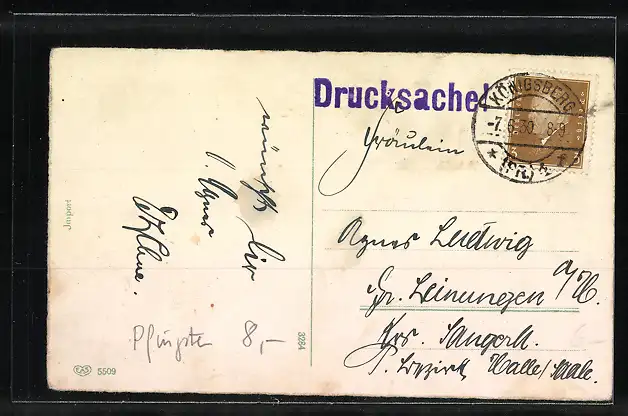 Drucksache!
KÖNIGSBERG
-7.6.30. 8-9
* (PR.) 4 *
Fräulein
Agnes Ludwig
Gr. Leinungen a/H.
Krs. Sangerh.
Bezirk Halle/Saale.
wünscht Dir
l. Agnes
Pfingsten 8,-
Import
3284
EAS 5509